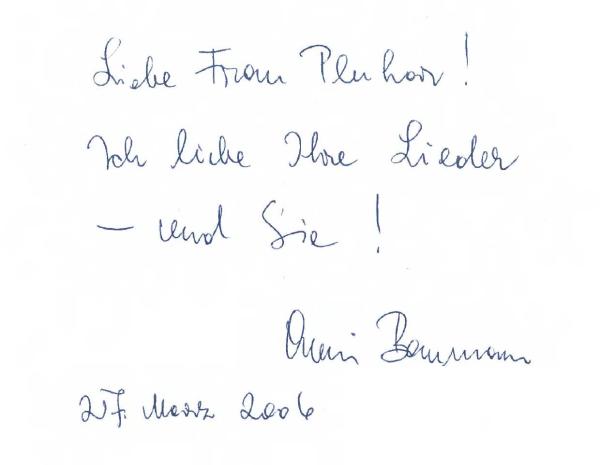 Liebe Frau Pluhar!
Ich liebe Ihre Lieder
– und Sie!
Baumann
27. März 2006